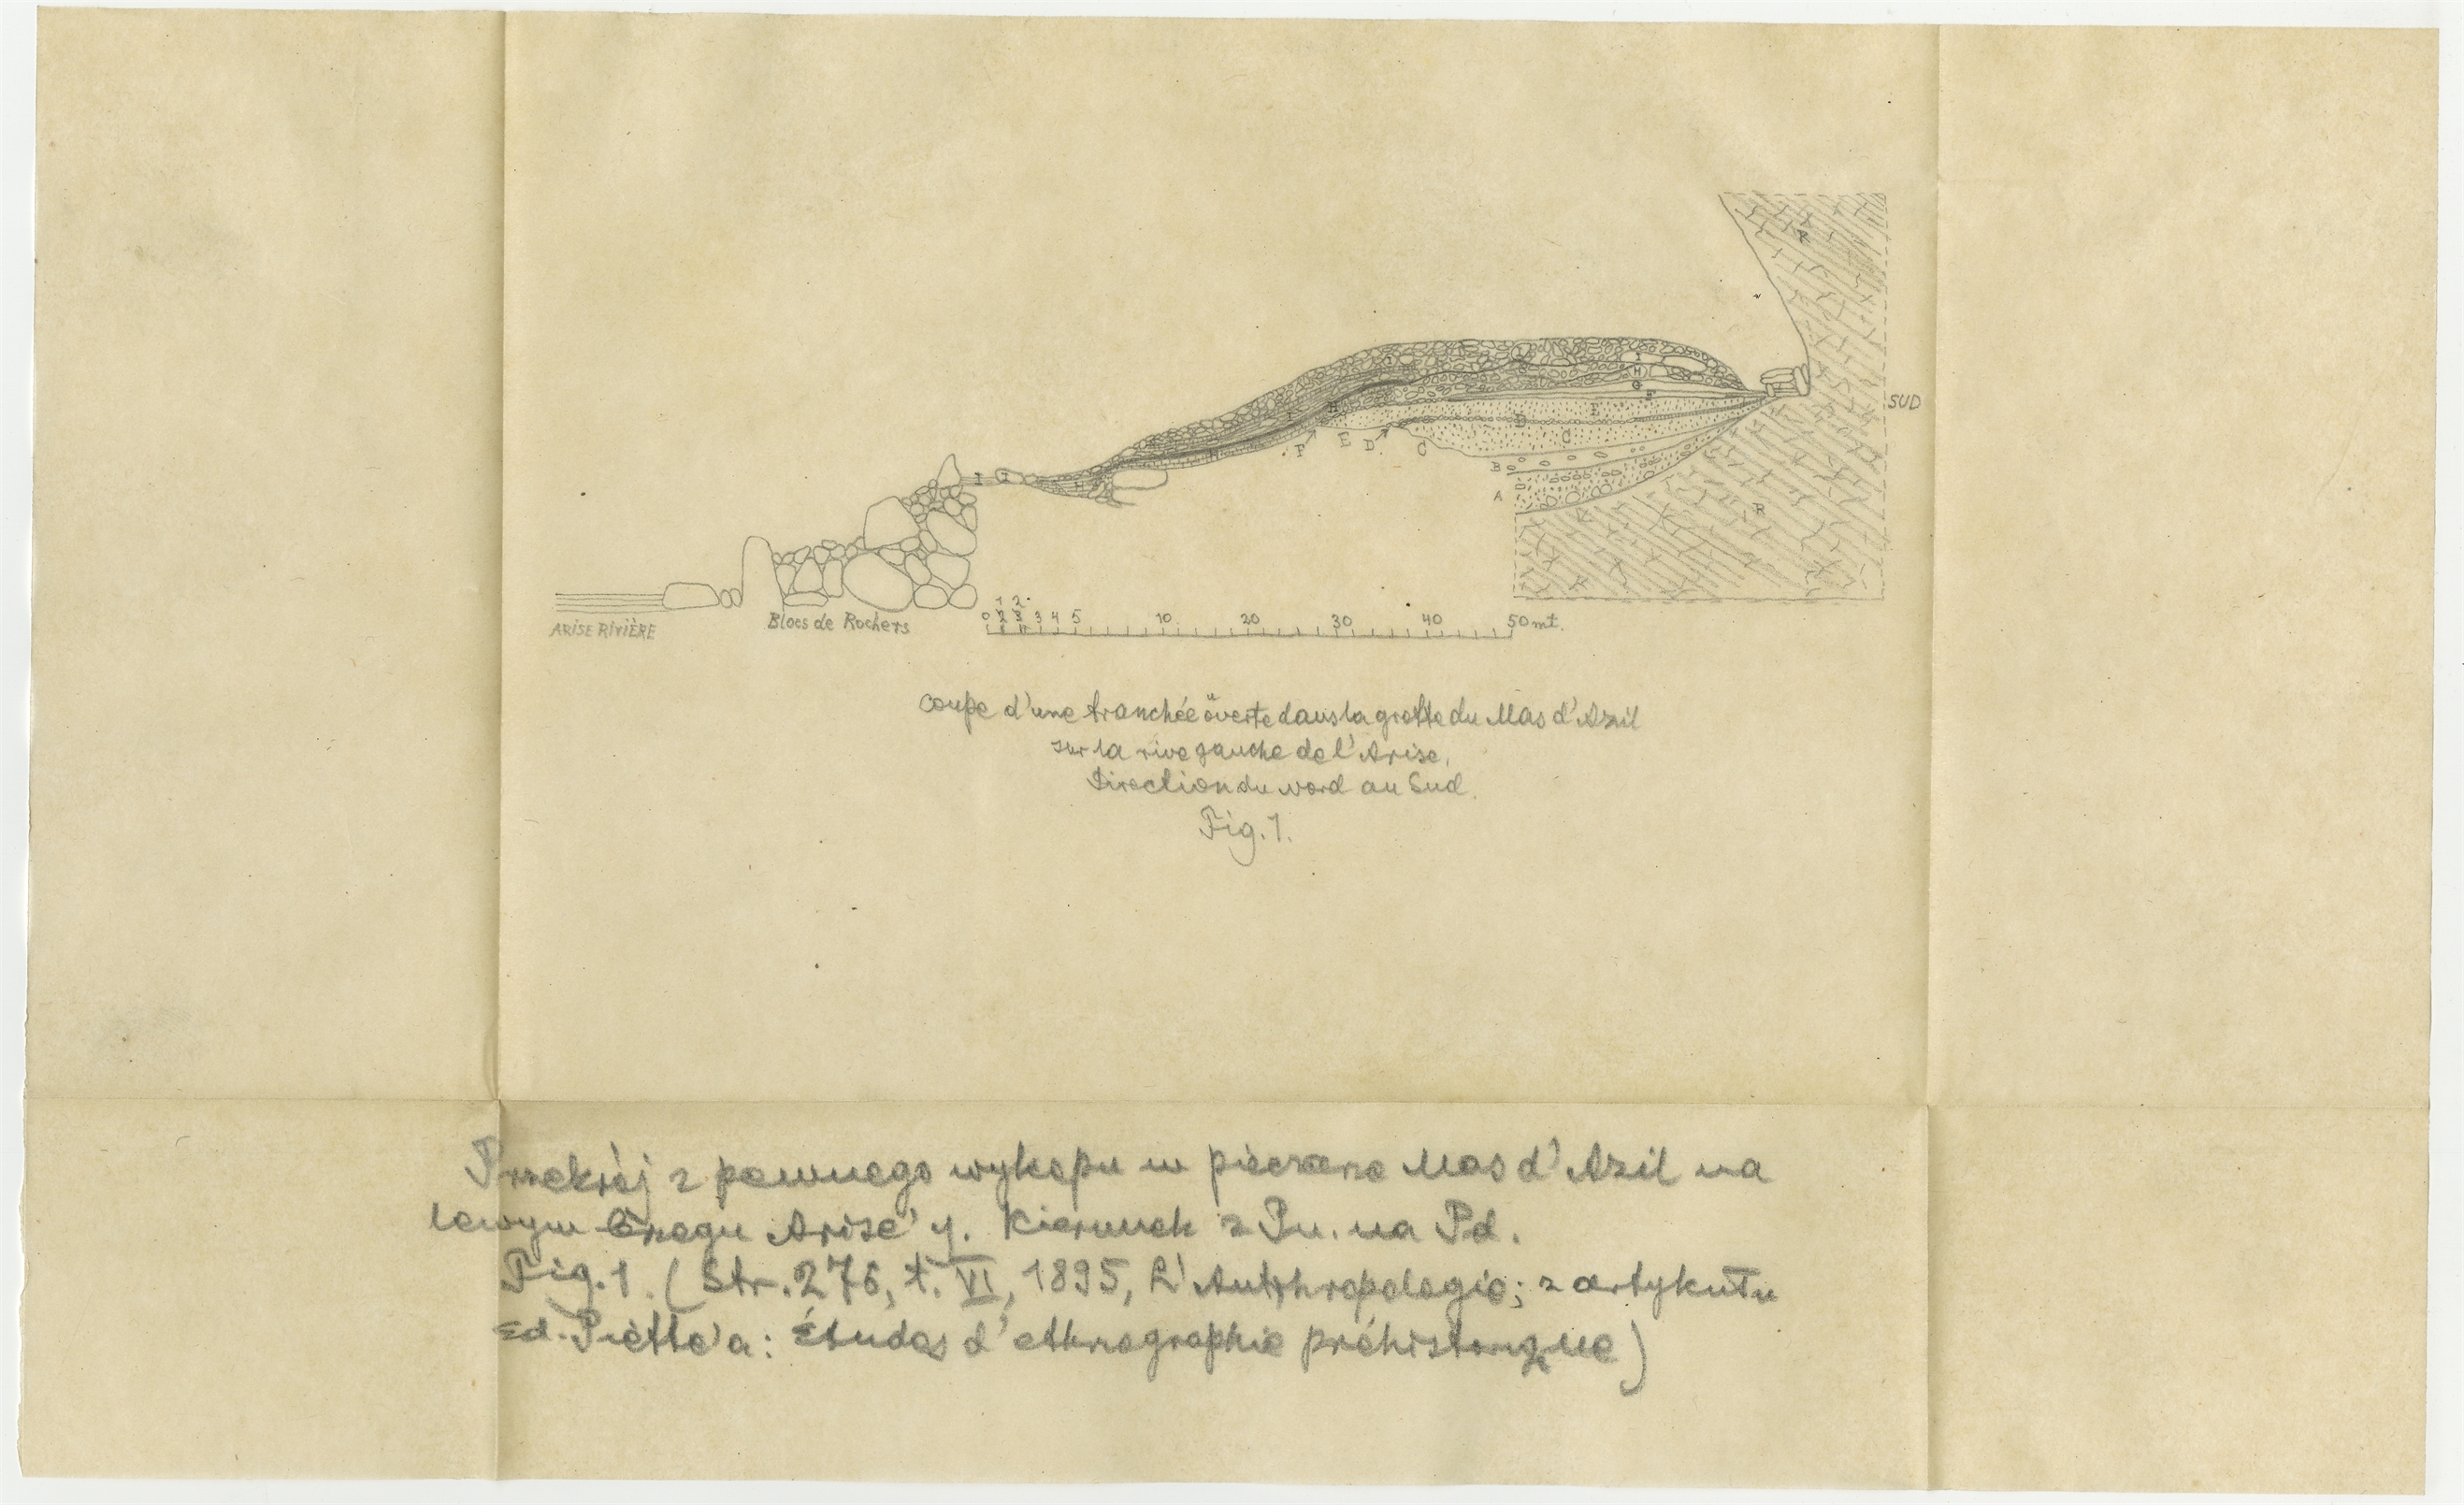 R
I
I
I
H
G
F
SUD
I
H
E
D
C
F
E
D
C
H
B
I
I
H
A
R
ARISE RIVIÈRE
Blocs de Rochers
1 2
0 2 3 3 4 5 10 20 30 40 50 mt.
Coupe d'une tranchée ouverte dans la grotte du Mas d'Azil
sur la rive gauche de l'Arise.
Direction du Nord au Sud.
Fig. 1.
Przekrój z pewnego wykopu w pieczarze Mas d'Azil na
lewym brzegu Arise'y. Kierunek z Pn. na Pd.
Fig. 1. (Str. 276, t. VI, 1895, L'Anthropologie; z artykułu
Ed. Piette'a: Études d'ethnographie préhistorique)